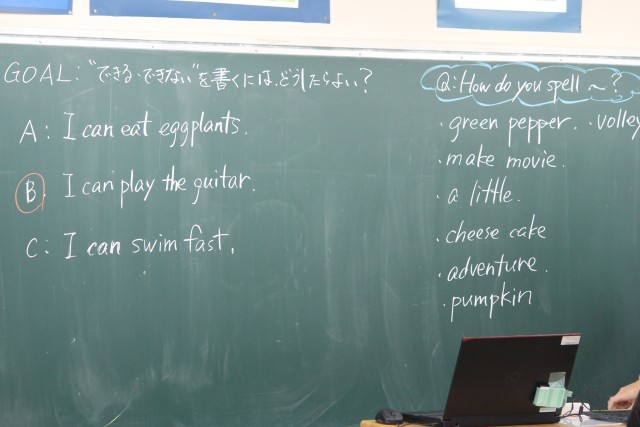 GOAL: "できる・できない"を書くには、どうしたらよい?
A: I can eat eggplants.
B: I can play the guitar.
C: I can swim fast.
Q: How do you spell ~?
・green pepper. ・volley
・make movie.
・a little.
・cheese cake
・adventure.
・pumpkin